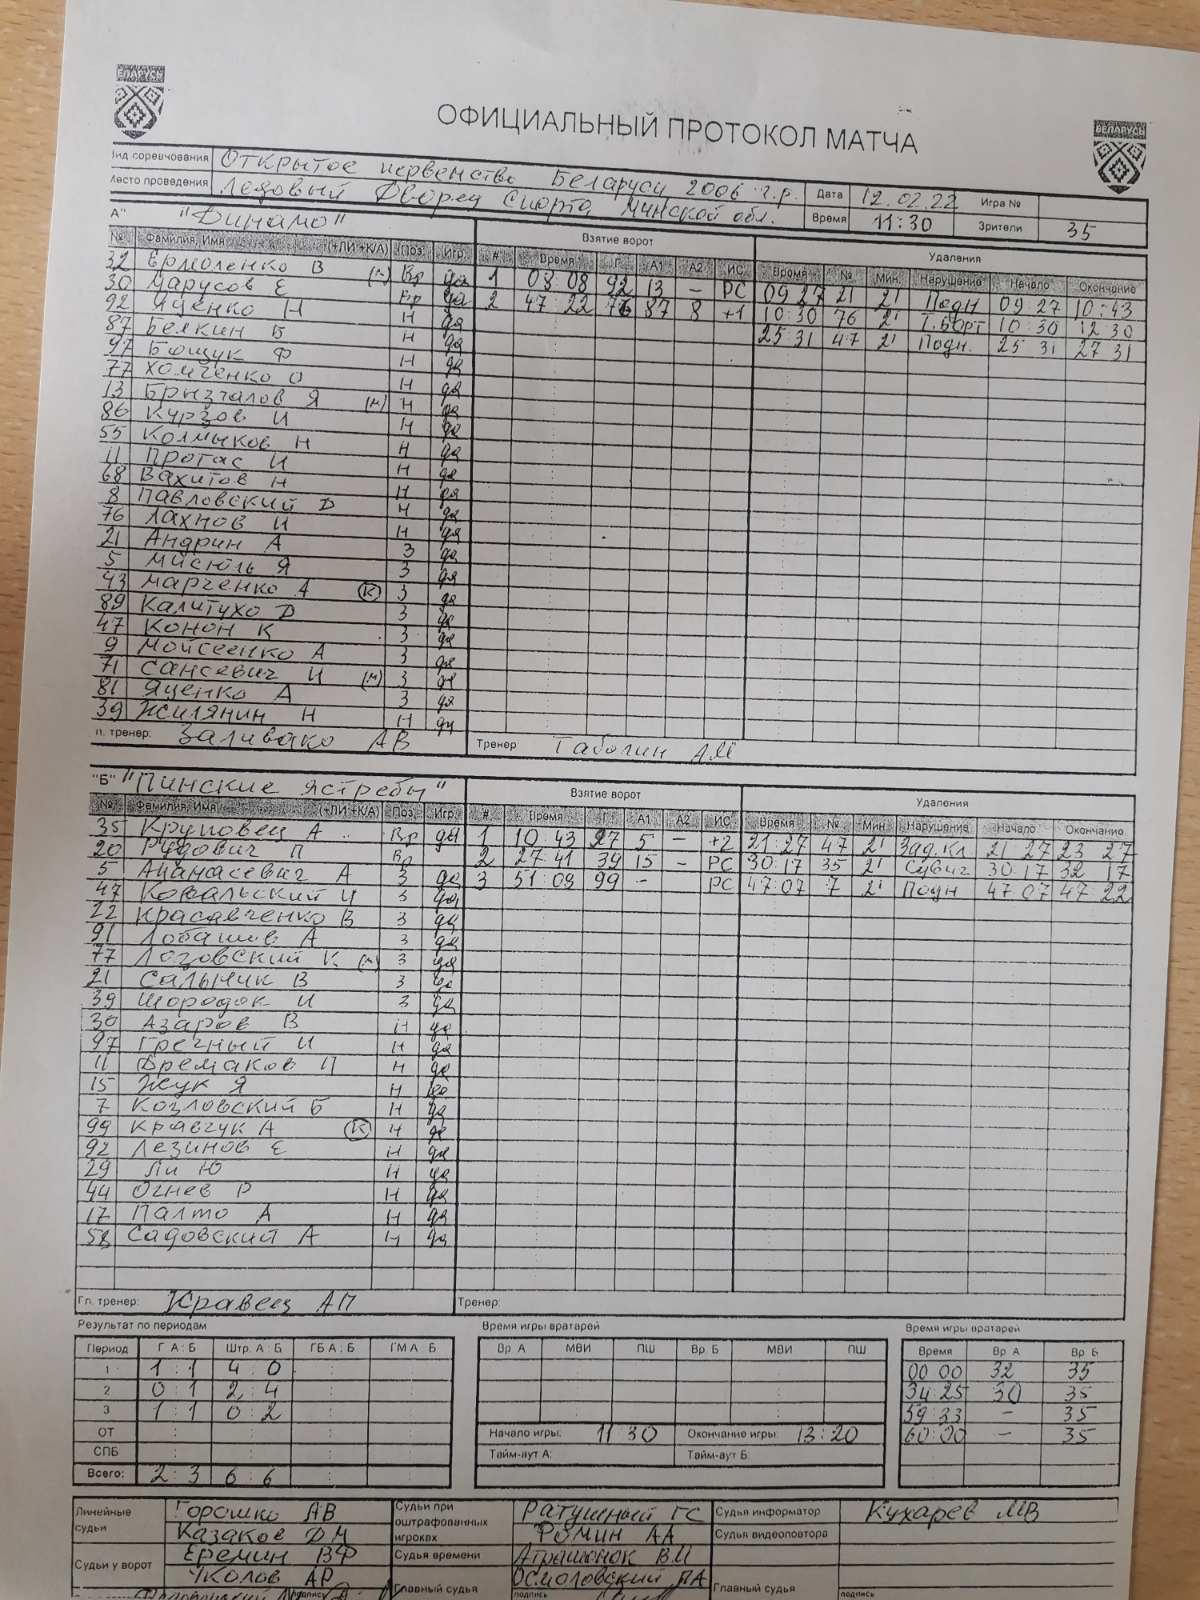 БЕЛАРУСЬ
БЕЛАРУСЬ
ОФИЦИАЛЬНЫЙ ПРОТОКОЛ МАТЧА
Вид соревнования Открытое первенство Беларуси 2006 г.р. Дата 12.02.22 Игра №
Место проведения Ледовый Дворец Спорта Минской обл. Время 11:30 Зрители 35
"А" "Динамо" Взятие ворот Удаления
№ Фамилия, Имя (+ЛИ +К/А) Поз Игр # Время Г А1 А2 ИС Время № Мин. Нарушение Начало Окончание
32 Ермоленко В (м) Вр да 1 08 08 92 13 - РС 09 27 21 2' Подн 09 27 10:43
30 Марусов Е Вр да 2 47 22 76 87 8 +1 10:30 76 2' Т.Борт 10 30 12 30
92 Яценко Н Н да 25 31 47 2' Подн. 25 31 27 31
87 Белкин Б Н да
97 Бощук Ф Н да
77 Хомченко О Н да
13 Брызгалов Я (м) Н да
86 Курзов И Н да
55 Колмыков Н Н да
11 Протас И Н да
68 Вахитов Н Н да
8 Павловский Д Н да
76 Лахнов И Н да
21 Андрин А З да
5 Мисюль Я З да
43 Марченко А (К) З да
89 Калитухо Д З да
47 Конон К З да
9 Мойсеенко А З да
71 Сансевич И (м) З да
81 Яценко А З да
39 Жилянин Н Н да
Гл. тренер: Заливако АВ Тренер Табогин АМ
"Б" "Пинские Ястребы" Взятие ворот Удаления
№ Фамилия, Имя (+ЛИ +К/А) Поз. Игр. # Время Г А1 А2 ИС Время № Мин Нарушение Начало Окончание
35 Круповец А Вр да 1 10 43 97 5 - +2 21:27 47 2' Зад.кл 21 27 23 27
20 Рудович П Вр 2 27 41 39 15 - РС 30:17 35 2' 30 17 32 17
5 Апанасевич А З да 3 51:09 99 - РС 47:07 7 2' Подн 47 07 47 22
47 Ковальский И З да
22 Красавченко В З да
91 Лобашив А З да
77 Лозовский К З да
21 Салынчик В З да
39 Шородок И З да
30 Азаров В Н да
97 Гречный И Н да
11 Ермаков П Н да
15 Жук Я Н да
7 Козловский Б Н да
99 Кравчук А (К) Н да
92 Лезинов Е Н да
29 Ли Ю Н да
44 Огнев Р Н да
17 Палто А Н да
58 Садовский А Н да
Гл. тренер: Кравец АП Тренер:
Результат по периодам Время игры вратарей Время игры вратарей
Период Г А : Б Штр. А : Б ГБ А : Б ГМ А : Б Вр. А МВИ ПШ Вр. Б МВИ ПШ Время Вр. А Вр. Б
1 1 : 1 4 : 0 00 00 32 35
2 0 : 1 2 : 4 34:25 30 35
3 1 : 1 0 : 2 59:33 - 35
ОТ Начало игры: 11 30 Окончание игры: 13:20 60:00 - 35
СПБ Тайм-аут А: Тайм-аут Б:
Всего: 2 : 3 6 : 6
Линейные судьи Горошко АВ Судьи при оштрафованных игроках Ратушный ГС Судья информатор Кухарев МВ
Казаков ДМ Фомин АА Судья видеоповтора
Судьи у ворот Еремин ВФ Судья времени Атрашонок ВИ
Чколов АР Осмоловский ПА
Главный судья Главный судья
подпись подпись подпись